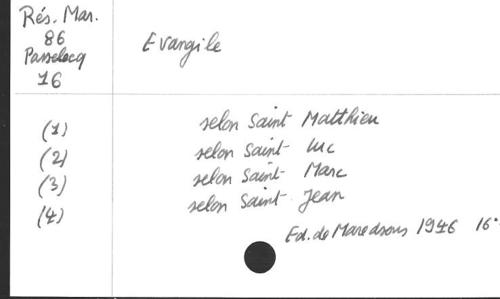 Rés. Mar.
86
Passelecq
16
Evangile
(1) selon Saint Matthieu
(2) selon Saint Luc
(3) selon Saint Marc
(4) selon Saint Jean
Ed. de Maredsous 1946 16°